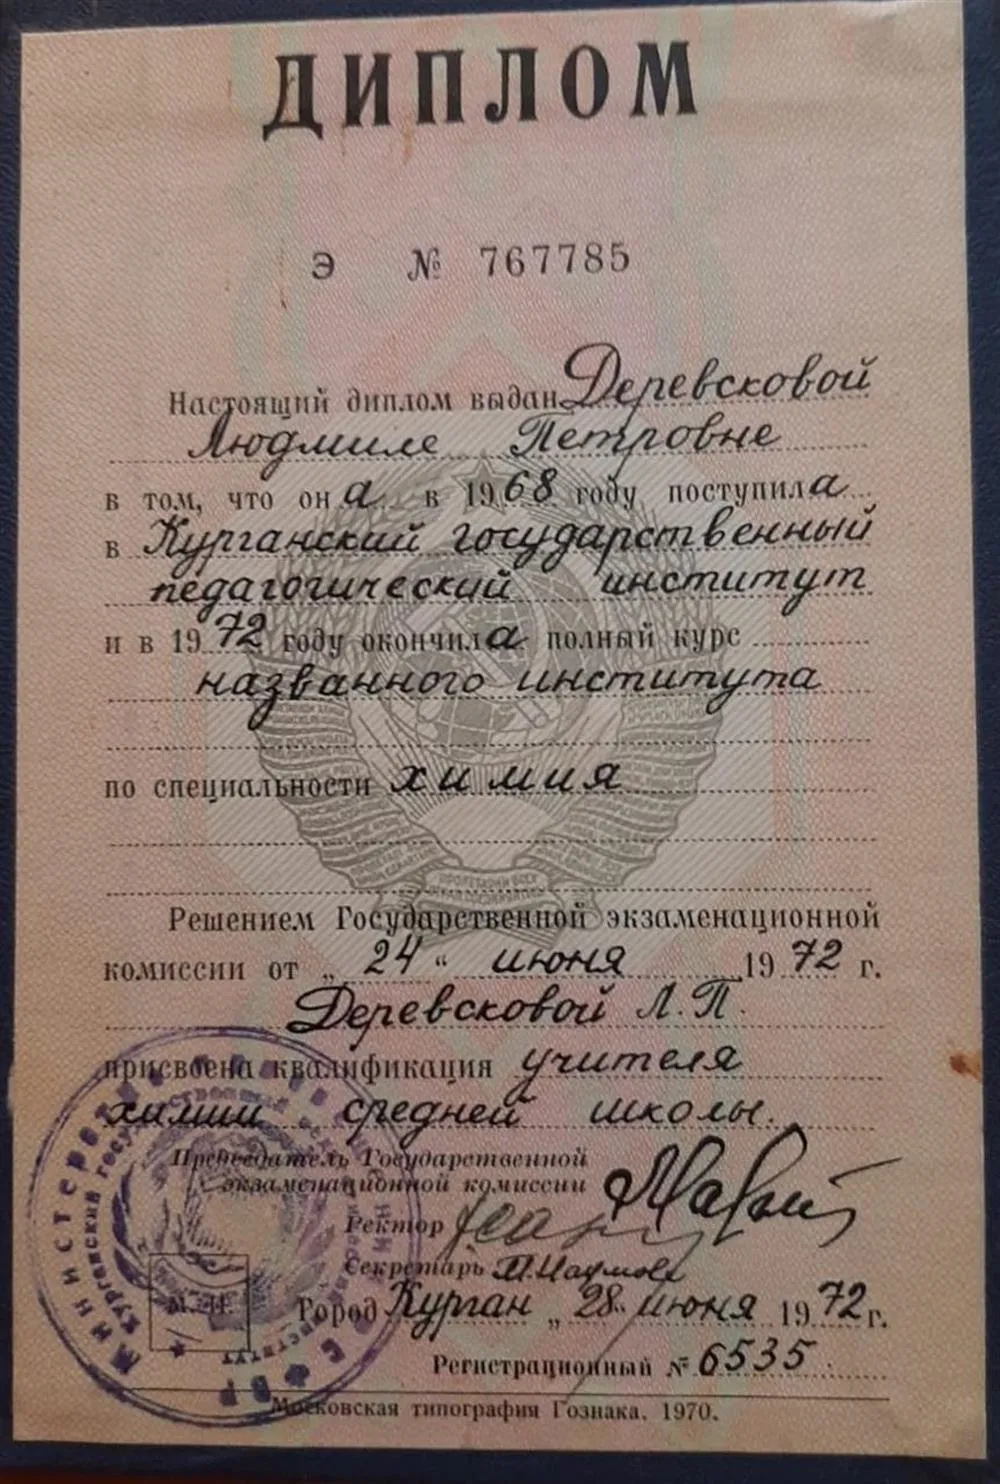 ДИПЛОМ
Э № 767785
Настоящий диплом выдан Деревсковой
Людмиле Петровне
в том, что она в 1968 году поступила
в Курганский государственный
педагогический институт
и в 1972 году окончила полный курс
названного института
по специальности химия
Решением Государственной экзаменационной
комиссии от „24“ июня 1972 г.
Деревсковой Л.П.
присвоена квалификация учителя
химии средней школы.
Председатель Государственной
экзаменационной комиссии
Ректор
Секретарь
М. П.
Город Курган „28“ июня 1972 г.
Регистрационный № 6535
Московская типография Гознака. 1970.